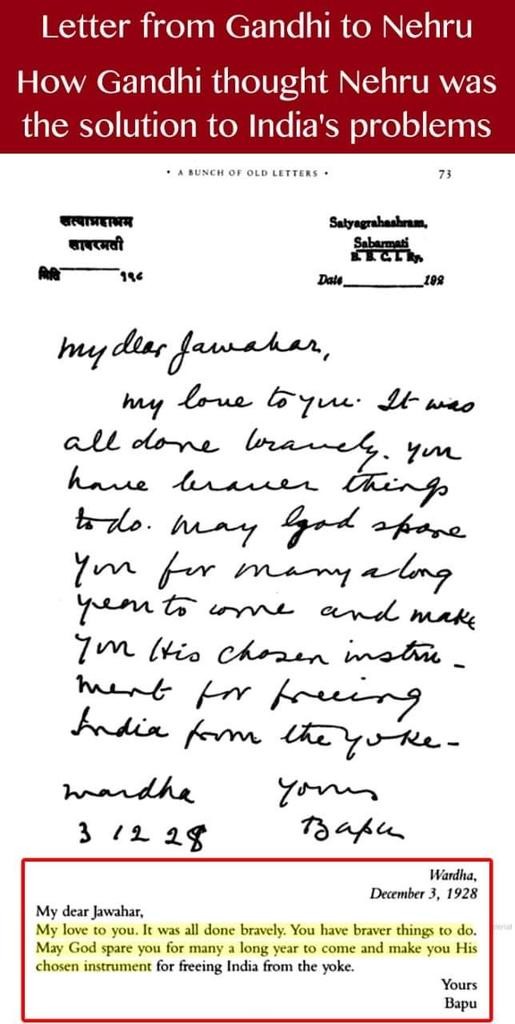 Letter from Gandhi to Nehru
How Gandhi thought Nehru was
the solution to India's problems
• A BUNCH OF OLD LETTERS •
73
सत्याग्रहाश्रम
साबरमती
मिति ________ १९८
Satyagrahashram,
Sabarmati
B. B. C. I. Ry.
Date________192
My dear Jawahar,
My love to you. It was
all done bravely. You
have braver things
to do. May God spare
you for many a long
year to come and make
you His chosen instru-
ment for freeing
India from the yoke-
Wardha
Yours
3 12 28
Bapu
Wardha,
December 3, 1928
My dear Jawahar,
My love to you. It was all done bravely. You have braver things to do.
May God spare you for many a long year to come and make you His
chosen instrument for freeing India from the yoke.
Yours
Bapu